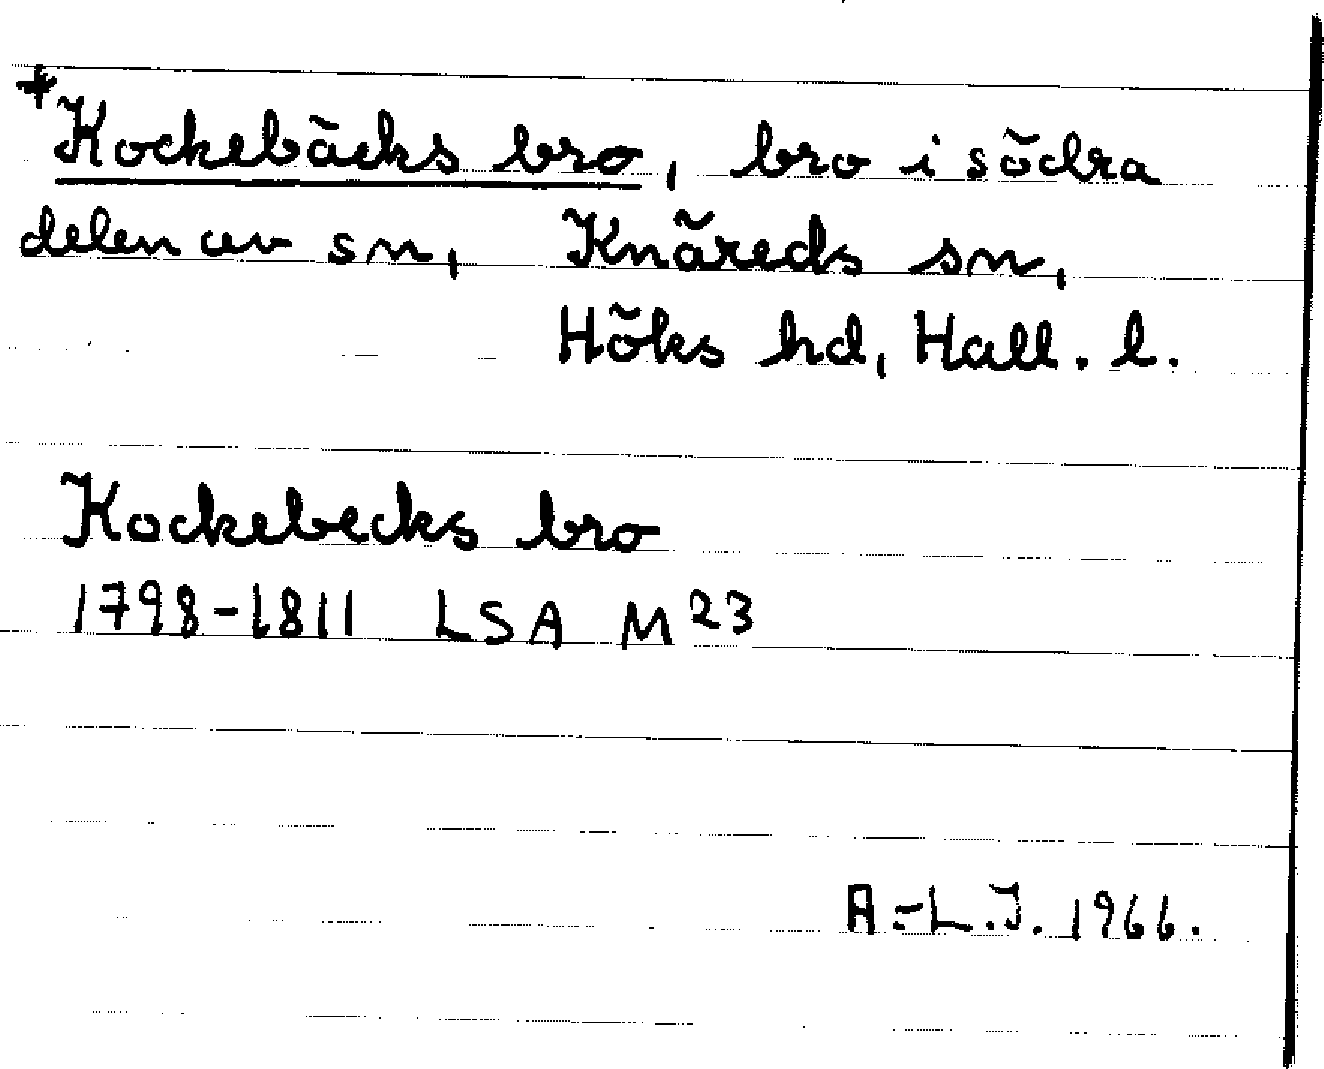 +Kockebäcks bro, bro i södra
delen av sn, Knäreds sn,
Höks hd, Hall. l.
Kockebecks bro
1798-1811 LSA M23
A-L.J. 1966.